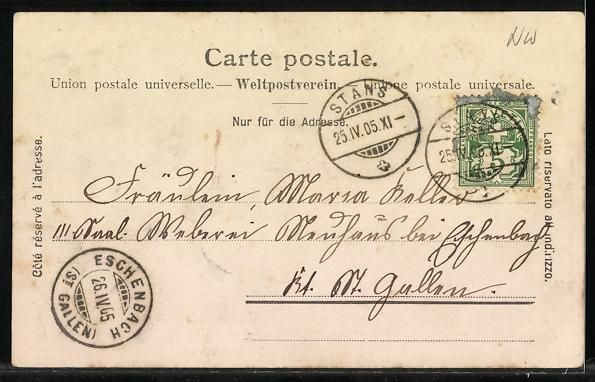 NW
Carte postale.
Union postale universelle. — Weltpostverein. — Unione postale universale.
Nur für die Adresse.
Côté réservé à l'adresse.
Lato riservato all'indirizzo.
STANS
25.IV.05.XI—
STANS
25.IV.05.XI—
5
Fräulein, Maria Keller
III Saal. Weberei Neuhaus bei Eschenbach
Kt. St. Gallen.
ESCHENBACH
26.IV.05
(ST. GALLEN)